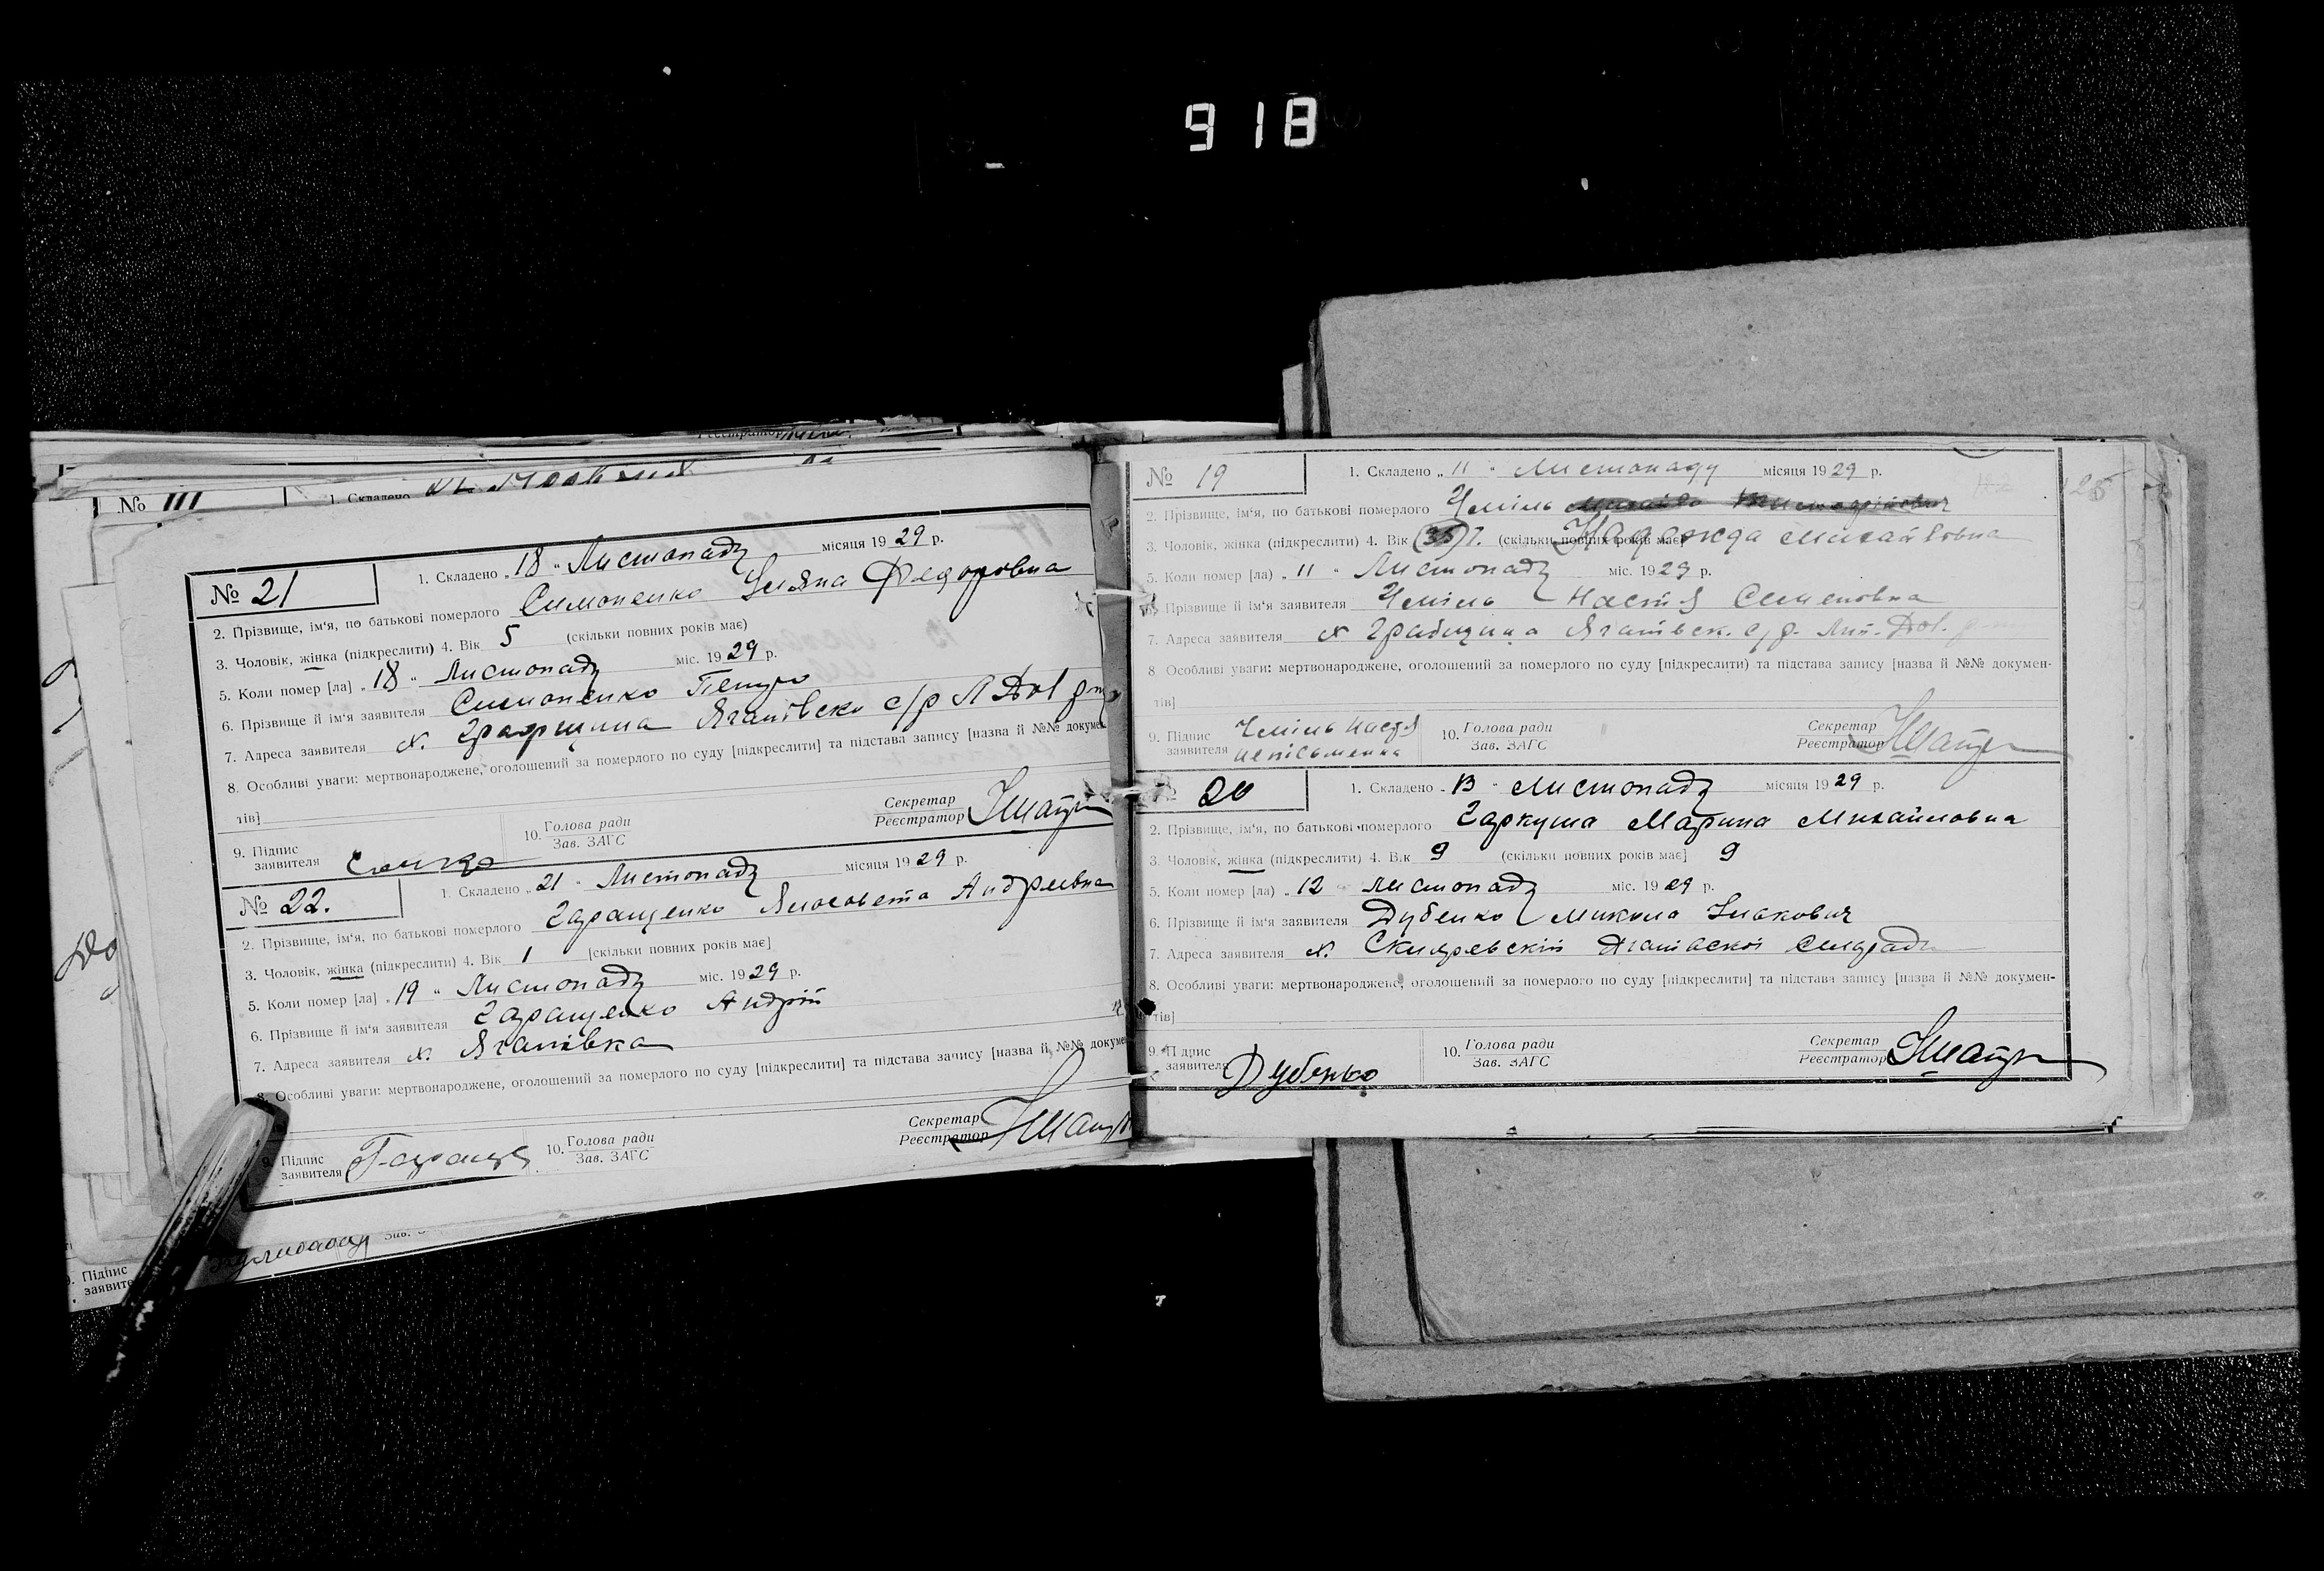 918
№ 111
1. Складено
№ 21
1. Складено „ 18 “ Листопаду місяця 1929 р.
2. Прізвище, ім'я, по батькові померлого Симоненко Уляна Федоровна
3. Чоловік, жінка (підкреслити) 4. Вік 5 (скільки повних років має)
5. Коли помер [ла] „ 18 “ Листопаду міс. 1929 р.
6. Прізвище й ім'я заявителя Симоненко Петро
7. Адреса заявителя х. Грабщина Ягатівско с/р
8. Особливі уваги: мертвонароджене, оголошений за померлого по суду [підкреслити] та підстава запису [назва й №№ докумен
тів]
9. Підпис заявителя
10. Голова ради Зав. ЗАГС
Секретар Реєстратор
№ 22.
1. Складено „ 21 “ Листопаду місяця 1929 р.
2. Прізвище, ім'я, по батькові померлого Гаращенко Андреівна
3. Чоловік, жінка (підкреслити) 4. Вік 1 [скільки повних років має]
5. Коли помер [ла] „ 19 “ Листопаду міс. 1929 р.
6. Прізвище й ім'я заявителя Гаращенко Андрій
7. Адреса заявителя х. Ягатівка
8. Особливі уваги: мертвонароджене, оголошений за померлого по суду [підкреслити] та підстава запису [назва й №№ докуме
9. Підпис заявителя Гараще
10. Голова ради Зав. ЗАГС
Секретар Реєстратор
9. Підпис
заявите
№ 19
1. Складено „ 11 “ Листопаду місяця 1929 р.
2. Прізвище, ім'я, по батькові померлого Чміль
3. Чоловік, жінка (підкреслити) 4. Вік (скільки повних років має) Надежда Михайловна
5. Коли помер [ла] „ 11 “ Листопаду міс. 1929 р.
Прізвище й ім'я заявителя Чміль Настя Семеновна
7. Адреса заявителя х Грабщина Ягатівск. с/р.
8 Особливі уваги: мертвонароджене, оголошений за померлого по суду [підкреслити) та підстава запису [назва й №№ докумен-
тів]
9. Підпис заявителя Чміль Настя неписьменна
10. Голова ради Зав. ЗАГС
Секретар Реєстратор
20
1. Складено „ 13 “ Листопаду місяця 1929 р.
2. Прізвище, ім'я, по батькові померлого Гаркуша Марина Михайловна
3. Чоловік, жінка (підкреслити) 4. Вік 9 (скільки повних років має] 9
5. Коли помер [ла) „ 12 “ листопаду міс. 1929 р.
6. Прізвище й ім'я заявителя Дубенко Микола
7. Адреса заявителя х.
8. Особливі уваги: мертвонароджене, оголошений за померлого по суду [підкреслити] та підстава запису [назва й №№ докумен-
тів]
9. Підпис заявителя Дубенко
10. Голова ради Зав. ЗАГС
Секретар Реєстратор